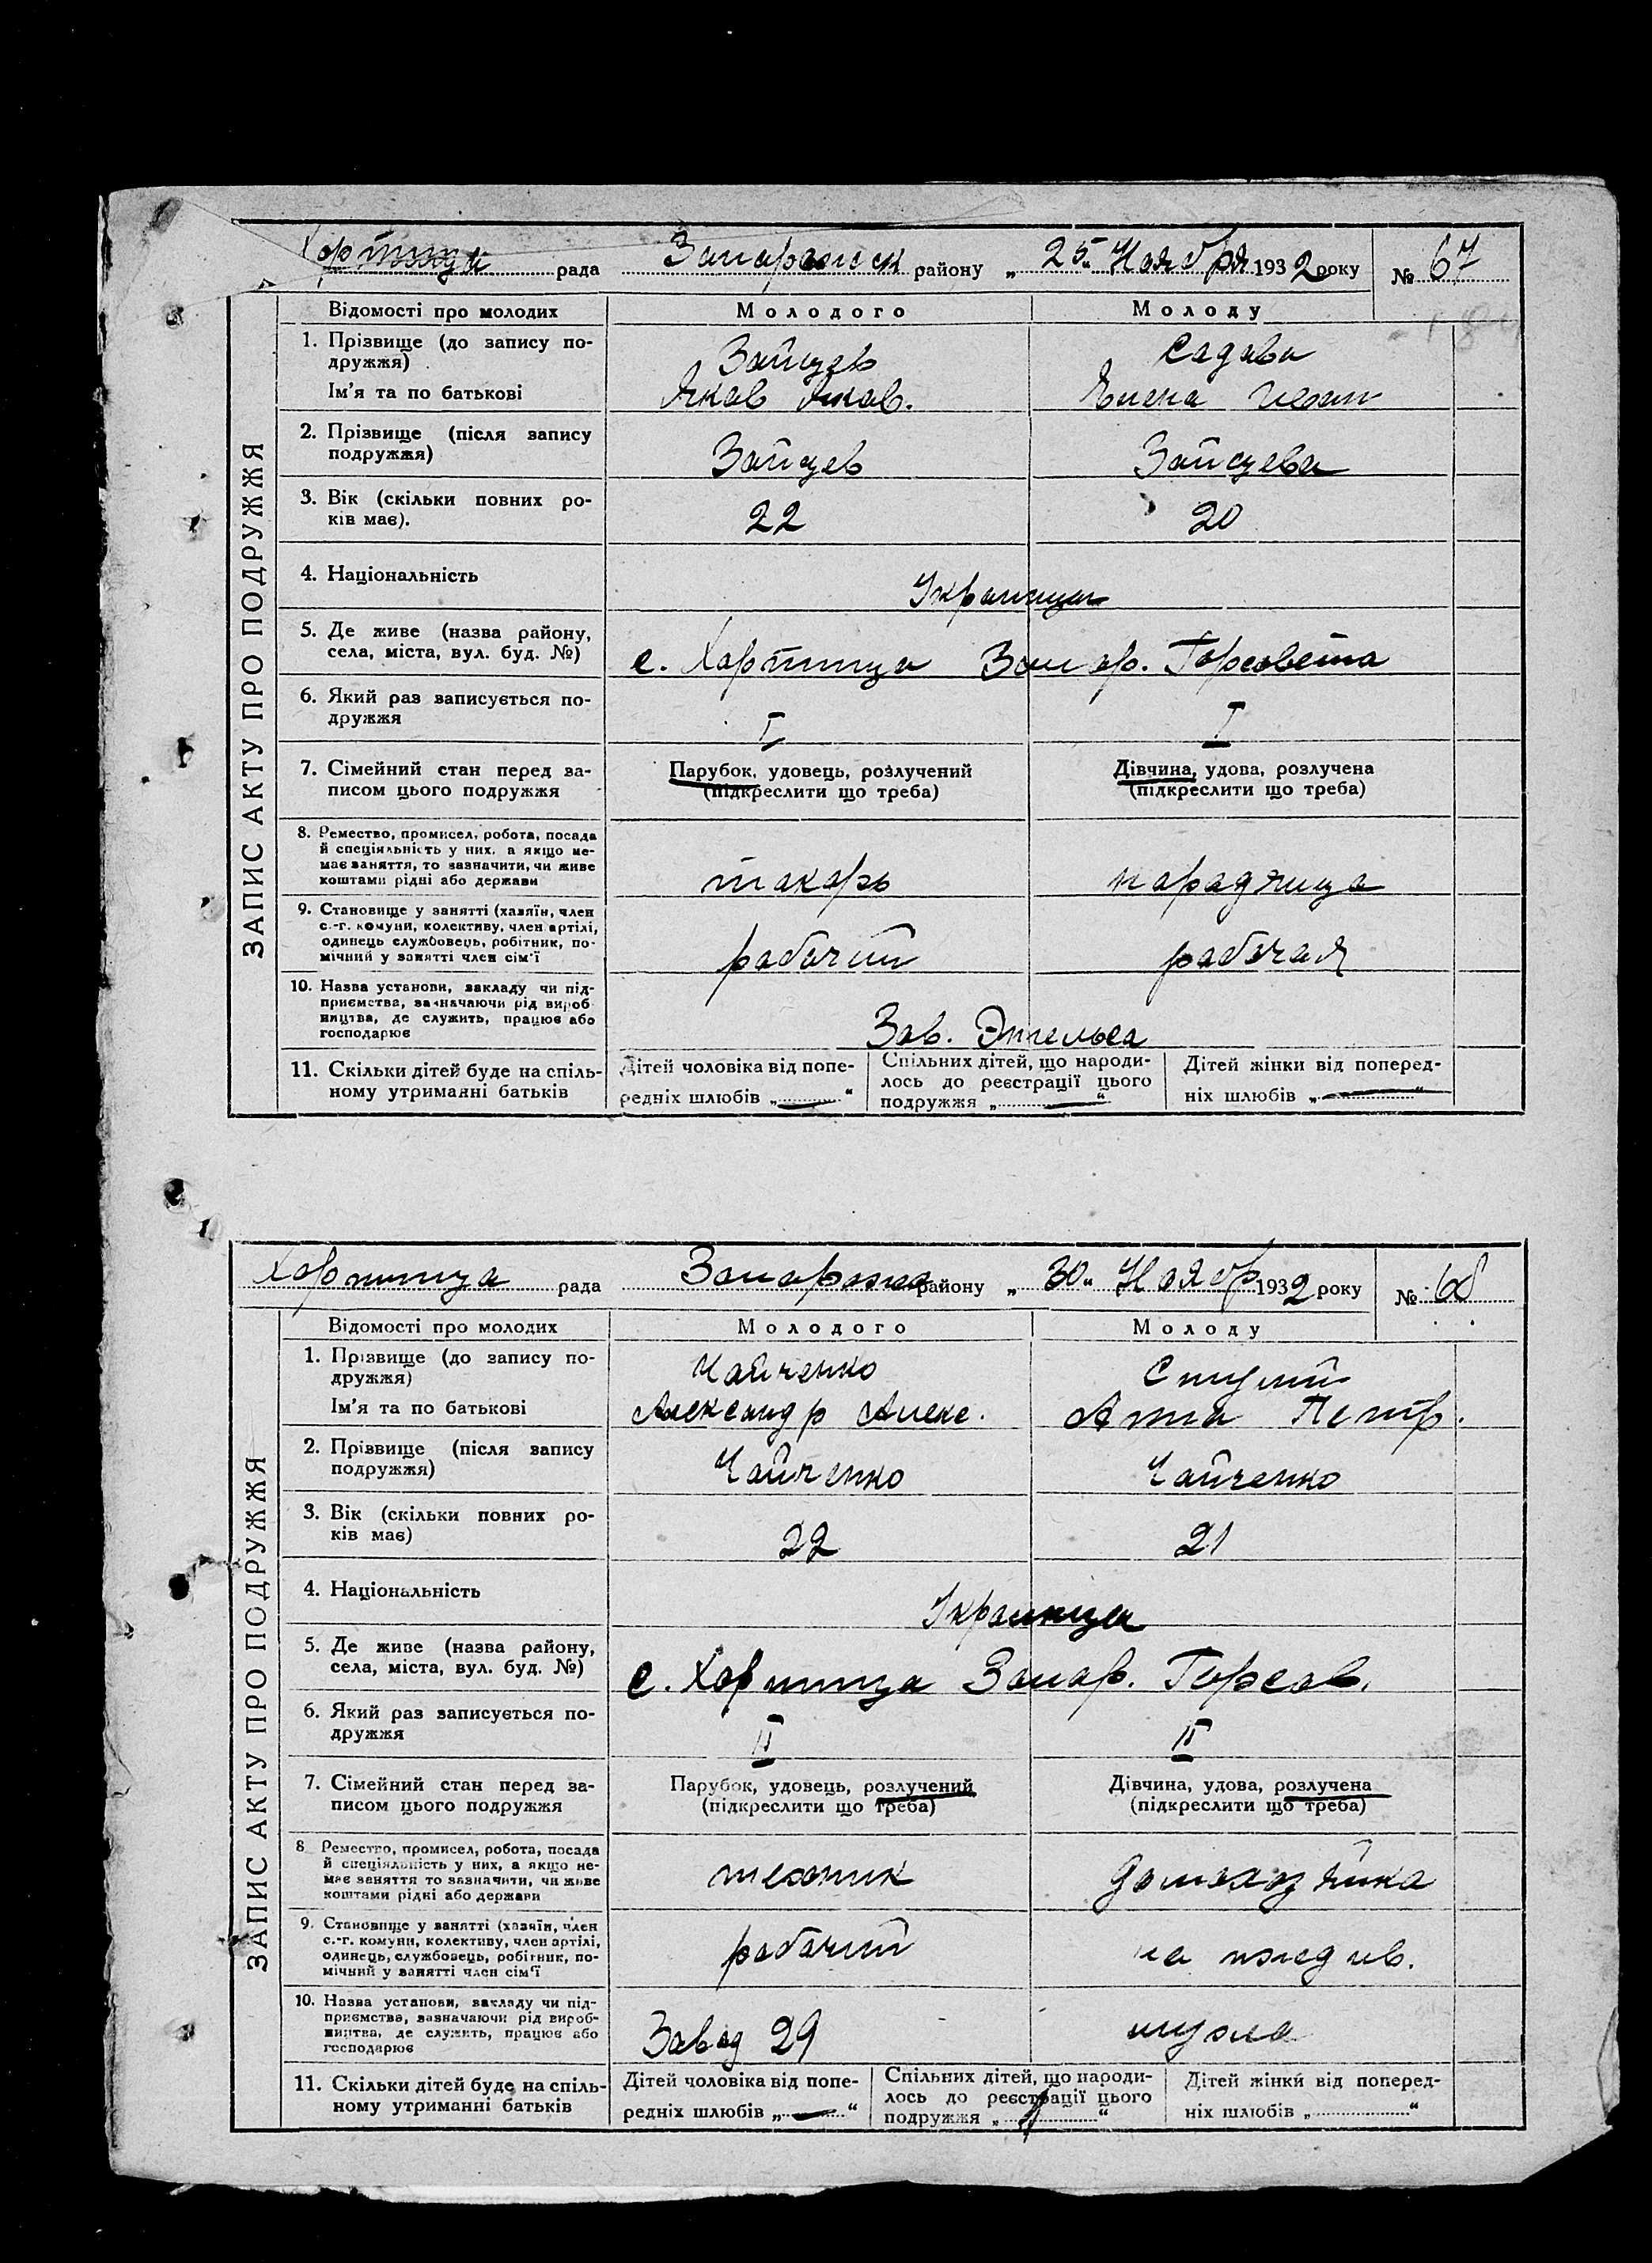 Хортица рада Запорожск району „ 25 " Ноября 1932 року № 67
ЗАПИС АКТУ ПРО ПОДРУЖЖЯ
Відомості про молодих Молодого Молоду
1. Прізвище (до запису по-
дружжя) Зайцев Садова
Ім'я та по батькові Яков Яков. Елена Иван
2. Прізвище (після запису
подружжя) Зайцев Зайцева
3. Вік (скільки повних ро-
ків має). 22 20
4. Національність Украинцы
5. Де живе (назва району,
села, міста, вул. буд. №) с. Хортица Запор. Горсовета
6. Який раз записується по-
дружжя I I
7. Сімейний стан перед за-
писом цього подружжя
Парубок, удовець, розлучений
(підкреслити що треба)
Дівчина, удова, розлучена
(підкреслити що треба)
8. Ремество, промисел, робота, посада
й спеціяльність у них, а якщо не-
має заняття, то зазначити, чи живе
коштами рідні або держави токарь нарядчица
9. Становище у занятті (хазяїн, член
с.-г. комуни, колективу, член артілі,
одинець службовець, робітник, по-
мічний у занятті член сім'ї рабочий рабочая
10. Назва установи, закладу чи під-
приємства, зазначаючи рід вироб
ництва, де служить, працює або
господарює Зав. Энгельса
11. Скільки дітей буде на спіль-
ному утриманні батьків
Дітей чоловіка від попе-
редніх шлюбів „ — “
Спільних дітей, що народи-
лось до реєстрації цього
подружжя „ — “
Дітей жінки від поперед-
ніх шлюбів „ — “
Хортица рада Запорожск району „ 30 " Ноябр 1932 року № 68
ЗАПИС АКТУ ПРО ПОДРУЖЖЯ
Відомості про молодих Молодого Молоду
1. Прізвище (до запису по-
дружжя) Чайченко
Ім'я та по батькові Александр Алекс. Анна Петр.
2. Прізвище (після запису
подружжя) Чайченко Чайченко
3. Вік (скільки повних ро-
ків має) 22 21
4. Національність Украинцы
5. Де живе (назва району,
села, міста, вул. буд. №) с. Хортица Запор. Горсов.
6. Який раз записується по-
дружжя II II
7. Сімейний стан перед за-
писом цього подружжя
Парубок, удовець, розлучений
(підкреслити що треба)
Дівчина, удова, розлучена
(підкреслити що треба)
8 Ремество, промисел, робота, посада
й спеціяльність у них, а якщо не-
має заняття то зазначити, чи живе
коштами рідні або держави техник домохозяйка
9. Становище у занятті (хазяїн, член
с.-г. комуни, колективу, член артілі,
одинець, службовець, робітник, по-
мічний у занятті член сім'ї рабочий на иждив.
10. Назва установи, закладу чи під-
приємства, зазначаючи рід вироб-
ництва, де служить, працює або
господарює Завод 29 мужа
11. Скільки дітей буде на спіль-
ному утриманні батьків
Дітей чоловіка від попе-
редніх шлюбів „ — “
Спільних дітей, що народи-
лось до реєстрації цього
подружжя „ 1 “
Дітей жінки від поперед-
ніх шлюбів „ “